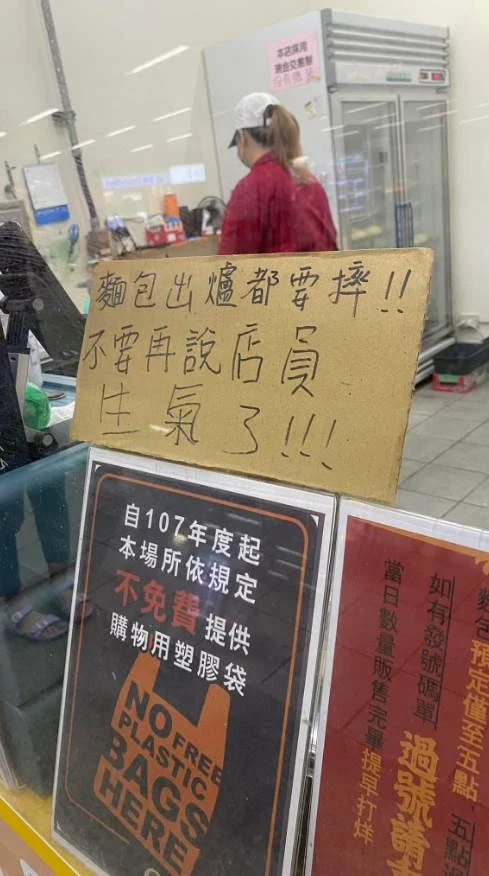 本店採用
現金交易制
麵包出爐都要摔!!
不要再說店員
生氣了!!!
自107年度起
本場所依規定
不免費提供
購物用塑膠袋
NO FREE
PLASTIC
BAGS
HERE
麵包預定僅至五點
如有發號碼單
過號請
當日數量販售完畢提早打烊